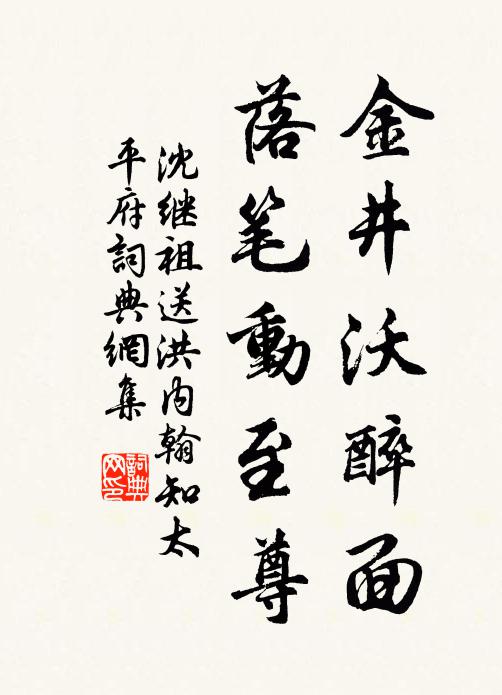 金井沃醉面
落笔動至尊
沈继祖送洪内翰知太
平府詞典網集
詞典
网印